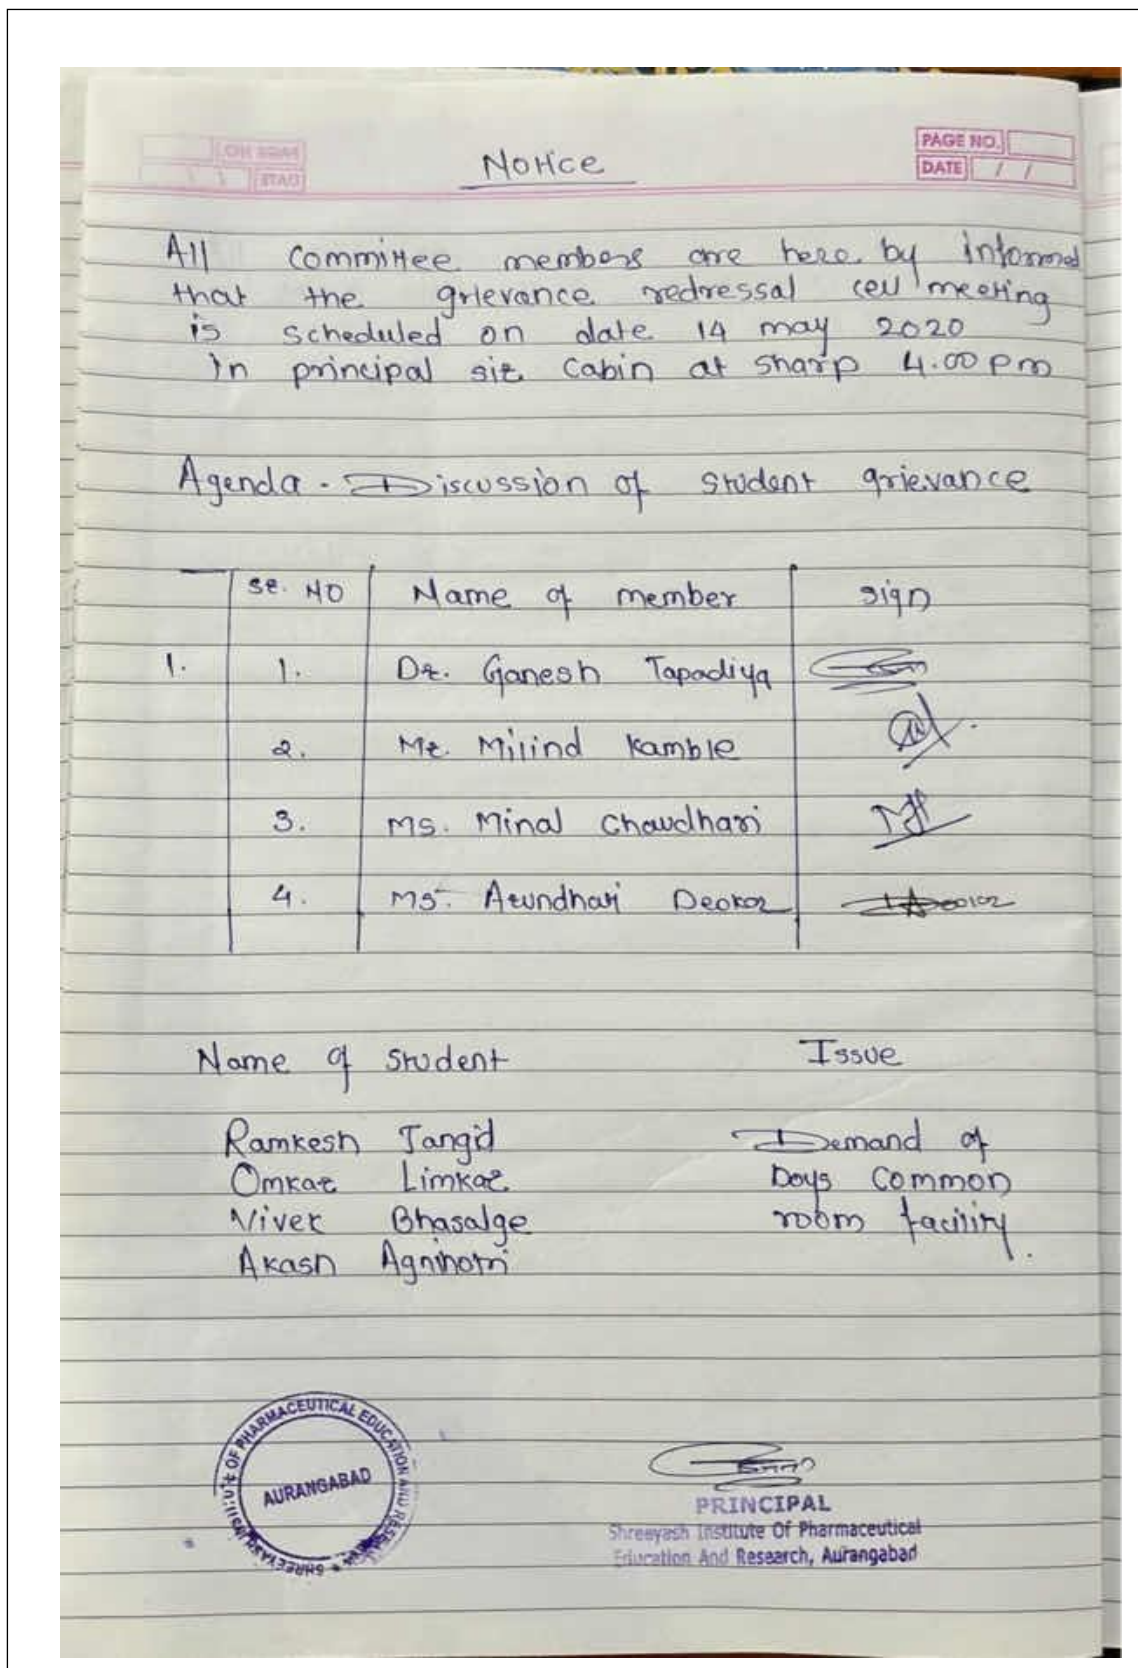 PAGE NO.
DATE / /
Notice
All committee members are here by informed
that the grievance redressal cell meeting
is scheduled on date 14 may 2020
in principal sir cabin at sharp 4.00 pm
Agenda - Discussion of student grievance
Sr. No Name of member sign
1. 1. Dr. Ganesh Tapadiya
2. Mr. Milind Kamble
3. Ms. Minal Chaudhari
4. Ms. Arundhati Deokar
Name of student Issue
Ramkesh Jangid Demand of
Omkar Limkar Boys common
Vivek Bhasalge room facility.
Akash Agnihotri
SHREEYASH INSTITUTE OF PHARMACEUTICAL EDUCATION AND RESEARCH
AURANGABAD
PRINCIPAL
Shreeyash Institute Of Pharmaceutical
Education And Research, Aurangabad